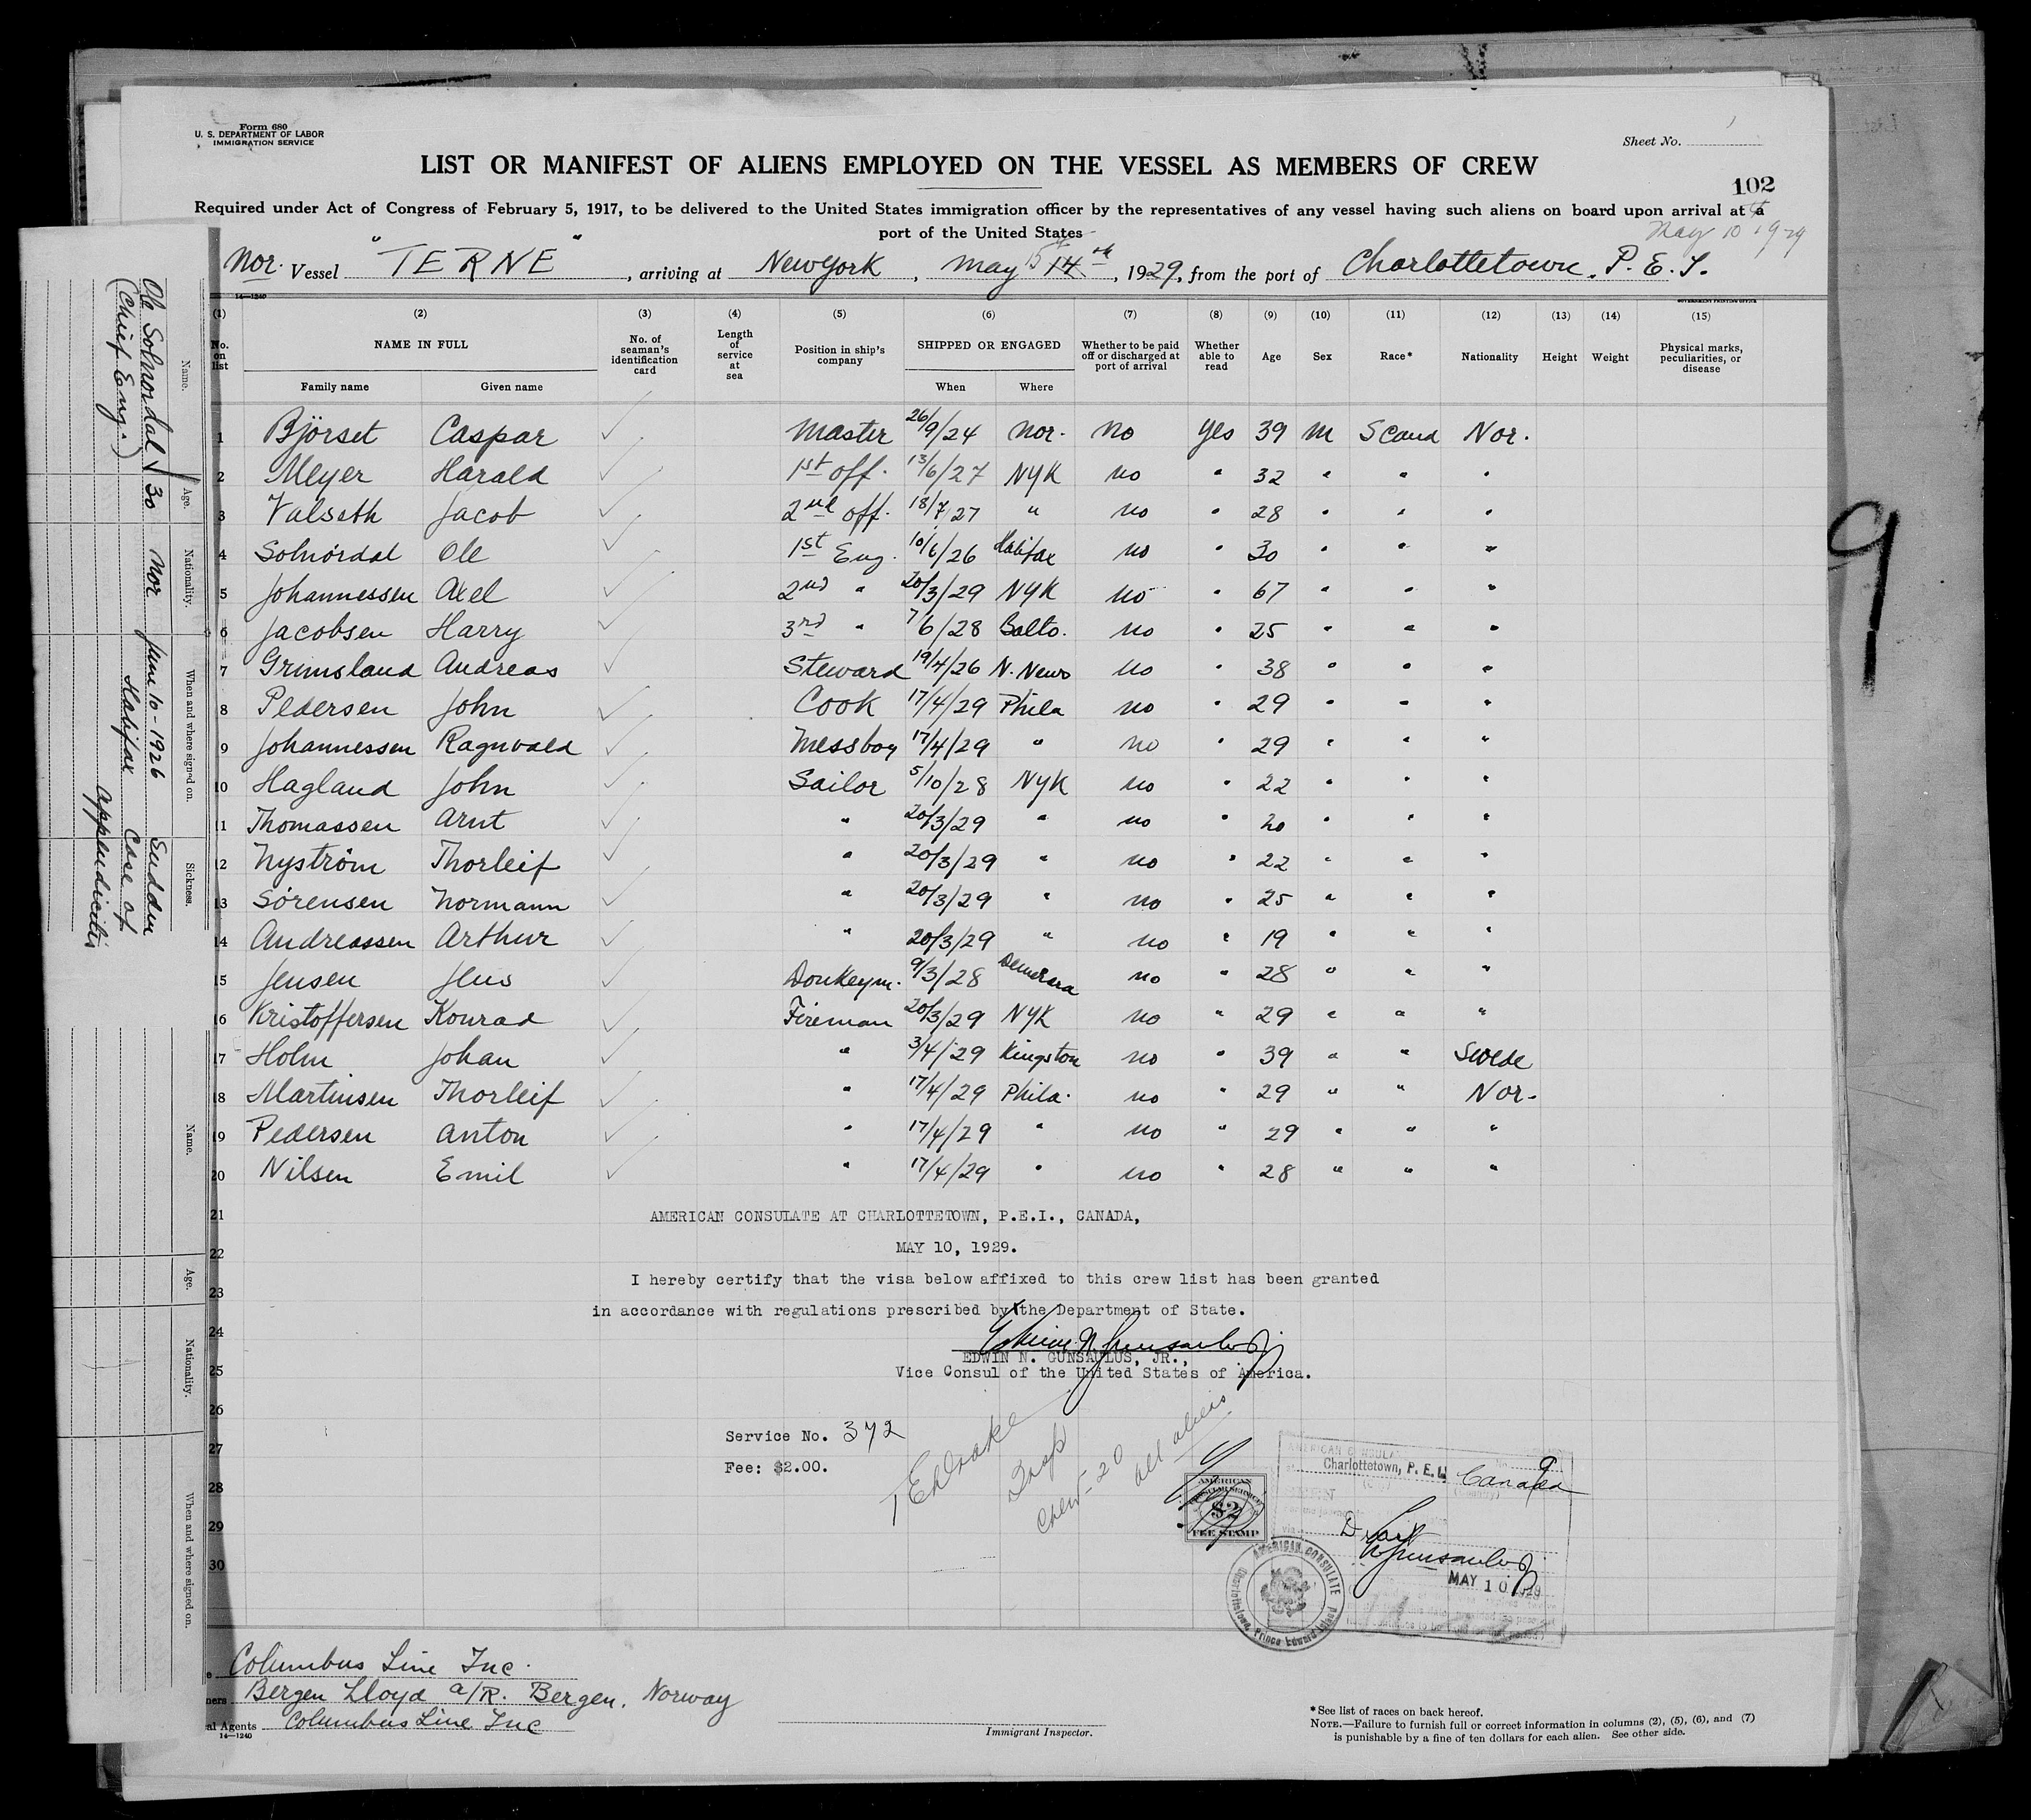 Form 680
U. S. DEPARTMENT OF LABOR
IMMIGRATION SERVICE
Sheet No.
LIST OR MANIFEST OF ALIENS EMPLOYED ON THE VESSEL AS MEMBERS OF CREW
102
Required under Act of Congress of February 5, 1917, to be delivered to the United States immigration officer by the representatives of any vessel having such aliens on board upon arrival at a
port of the United States
May 10 1929
Nor. Vessel "TERNE", arriving at New York, May 15 14th, 1929, from the port of Charlottetown. P. E. I.
14—1240
GOVERNMENT PRINTING OFFICE
(1) (2) (3) (4) (5) (6) (7) (8) (9) (10) (11) (12) (13) (14) (15)
No. on list NAME IN FULL No. of seaman's identification card Length of service at sea Position in ship's company SHIPPED OR ENGAGED Whether to be paid off or discharged at port of arrival Whether able to read Age Sex Race* Nationality Height Weight Physical marks, peculiarities, or disease
Family name Given name When Where
1 Bjørset Caspar Master 26/9/24 Nor. No Yes 39 M Scand Nor.
2 Meyer Harald 1st off. 13/6/27 NYK no " 32 " " "
3 Valseth Jacob 2nd off. 18/7/27 " no " 28 " " "
4 Solnördal Ole 1st Eng. 10/6/26 Halifax no " 30 " " "
5 Johannessen Axel 2nd " 20/3/29 NYK no " 67 " " "
6 Jacobsen Harry 3rd " 7/6/28 Balto. no " 25 " " "
7 Grimsland Andreas Steward 19/4/26 N. News no " 38 " " "
8 Pedersen John Cook 17/4/29 Phila no " 29 " " "
9 Johannessen Ragnvald Messboy 17/4/29 " no " 29 " " "
10 Hagland John Sailor 5/10/28 NYK no " 22 " " "
11 Thomassen Arnt " 20/3/29 " no " 20 " " "
12 Nyström Thorleif " 20/3/29 " no " 22 " " "
13 Sørensen Normann " 20/3/29 " no " 25 " " "
14 Andreassen Arthur " 20/3/29 " no " 19 " " "
15 Jensen Jens Donkeym. 9/3/28 Demerara no " 28 " " "
16 Kristoffersen Konrad Fireman 20/3/29 NYK no " 29 " " "
17 Holm Johan " 3/4/29 Kingston no " 39 " " Swede
18 Martinsen Thorleif " 17/4/29 Phila. no " 29 " " Nor.
19 Pedersen Anton " 17/4/29 " no " 29 " " "
20 Nilsen Emil " 17/4/29 " no " 28 " " "
21
AMERICAN CONSULATE AT CHARLOTTETOWN, P.E.I., CANADA,
22
MAY 10, 1929.
23
I hereby certify that the visa below affixed to this crew list has been granted
in accordance with regulations prescribed by the Department of State.
24
25
EDWIN N. GUNSAULUS, JR.,
Vice Consul of the United States of America.
26
27
28
29
30
Service No. 372
Fee: $2.00.
Crew-20
All aliens
AMERICAN
CONSULAR SERVICE
$2
FEE STAMP
AMERICAN CONSULATE
Charlottetown, Prince Edward Island
AMERICAN CONSULA
Charlottetown, P. E. I. Canada
MAY 10 1929
Columbus Line Inc.
ners Bergen Lloyd a/R. Bergen, Norway
al Agents Columbus Line Inc
14—1240
Immigrant Inspector.
*See list of races on back hereof.
NOTE.—Failure to furnish full or correct information in columns (2), (5), (6), and (7)
is punishable by a fine of ten dollars for each alien. See other side.
9
Name. Age. Nationality. When and where signed on. Sickness.
Ole Solnordal 30 Nor June 10-1926 Sudden
(Chief Eng.) Halifax Case of
appendicitis
Name. Age. Nationality. When and where signed on.